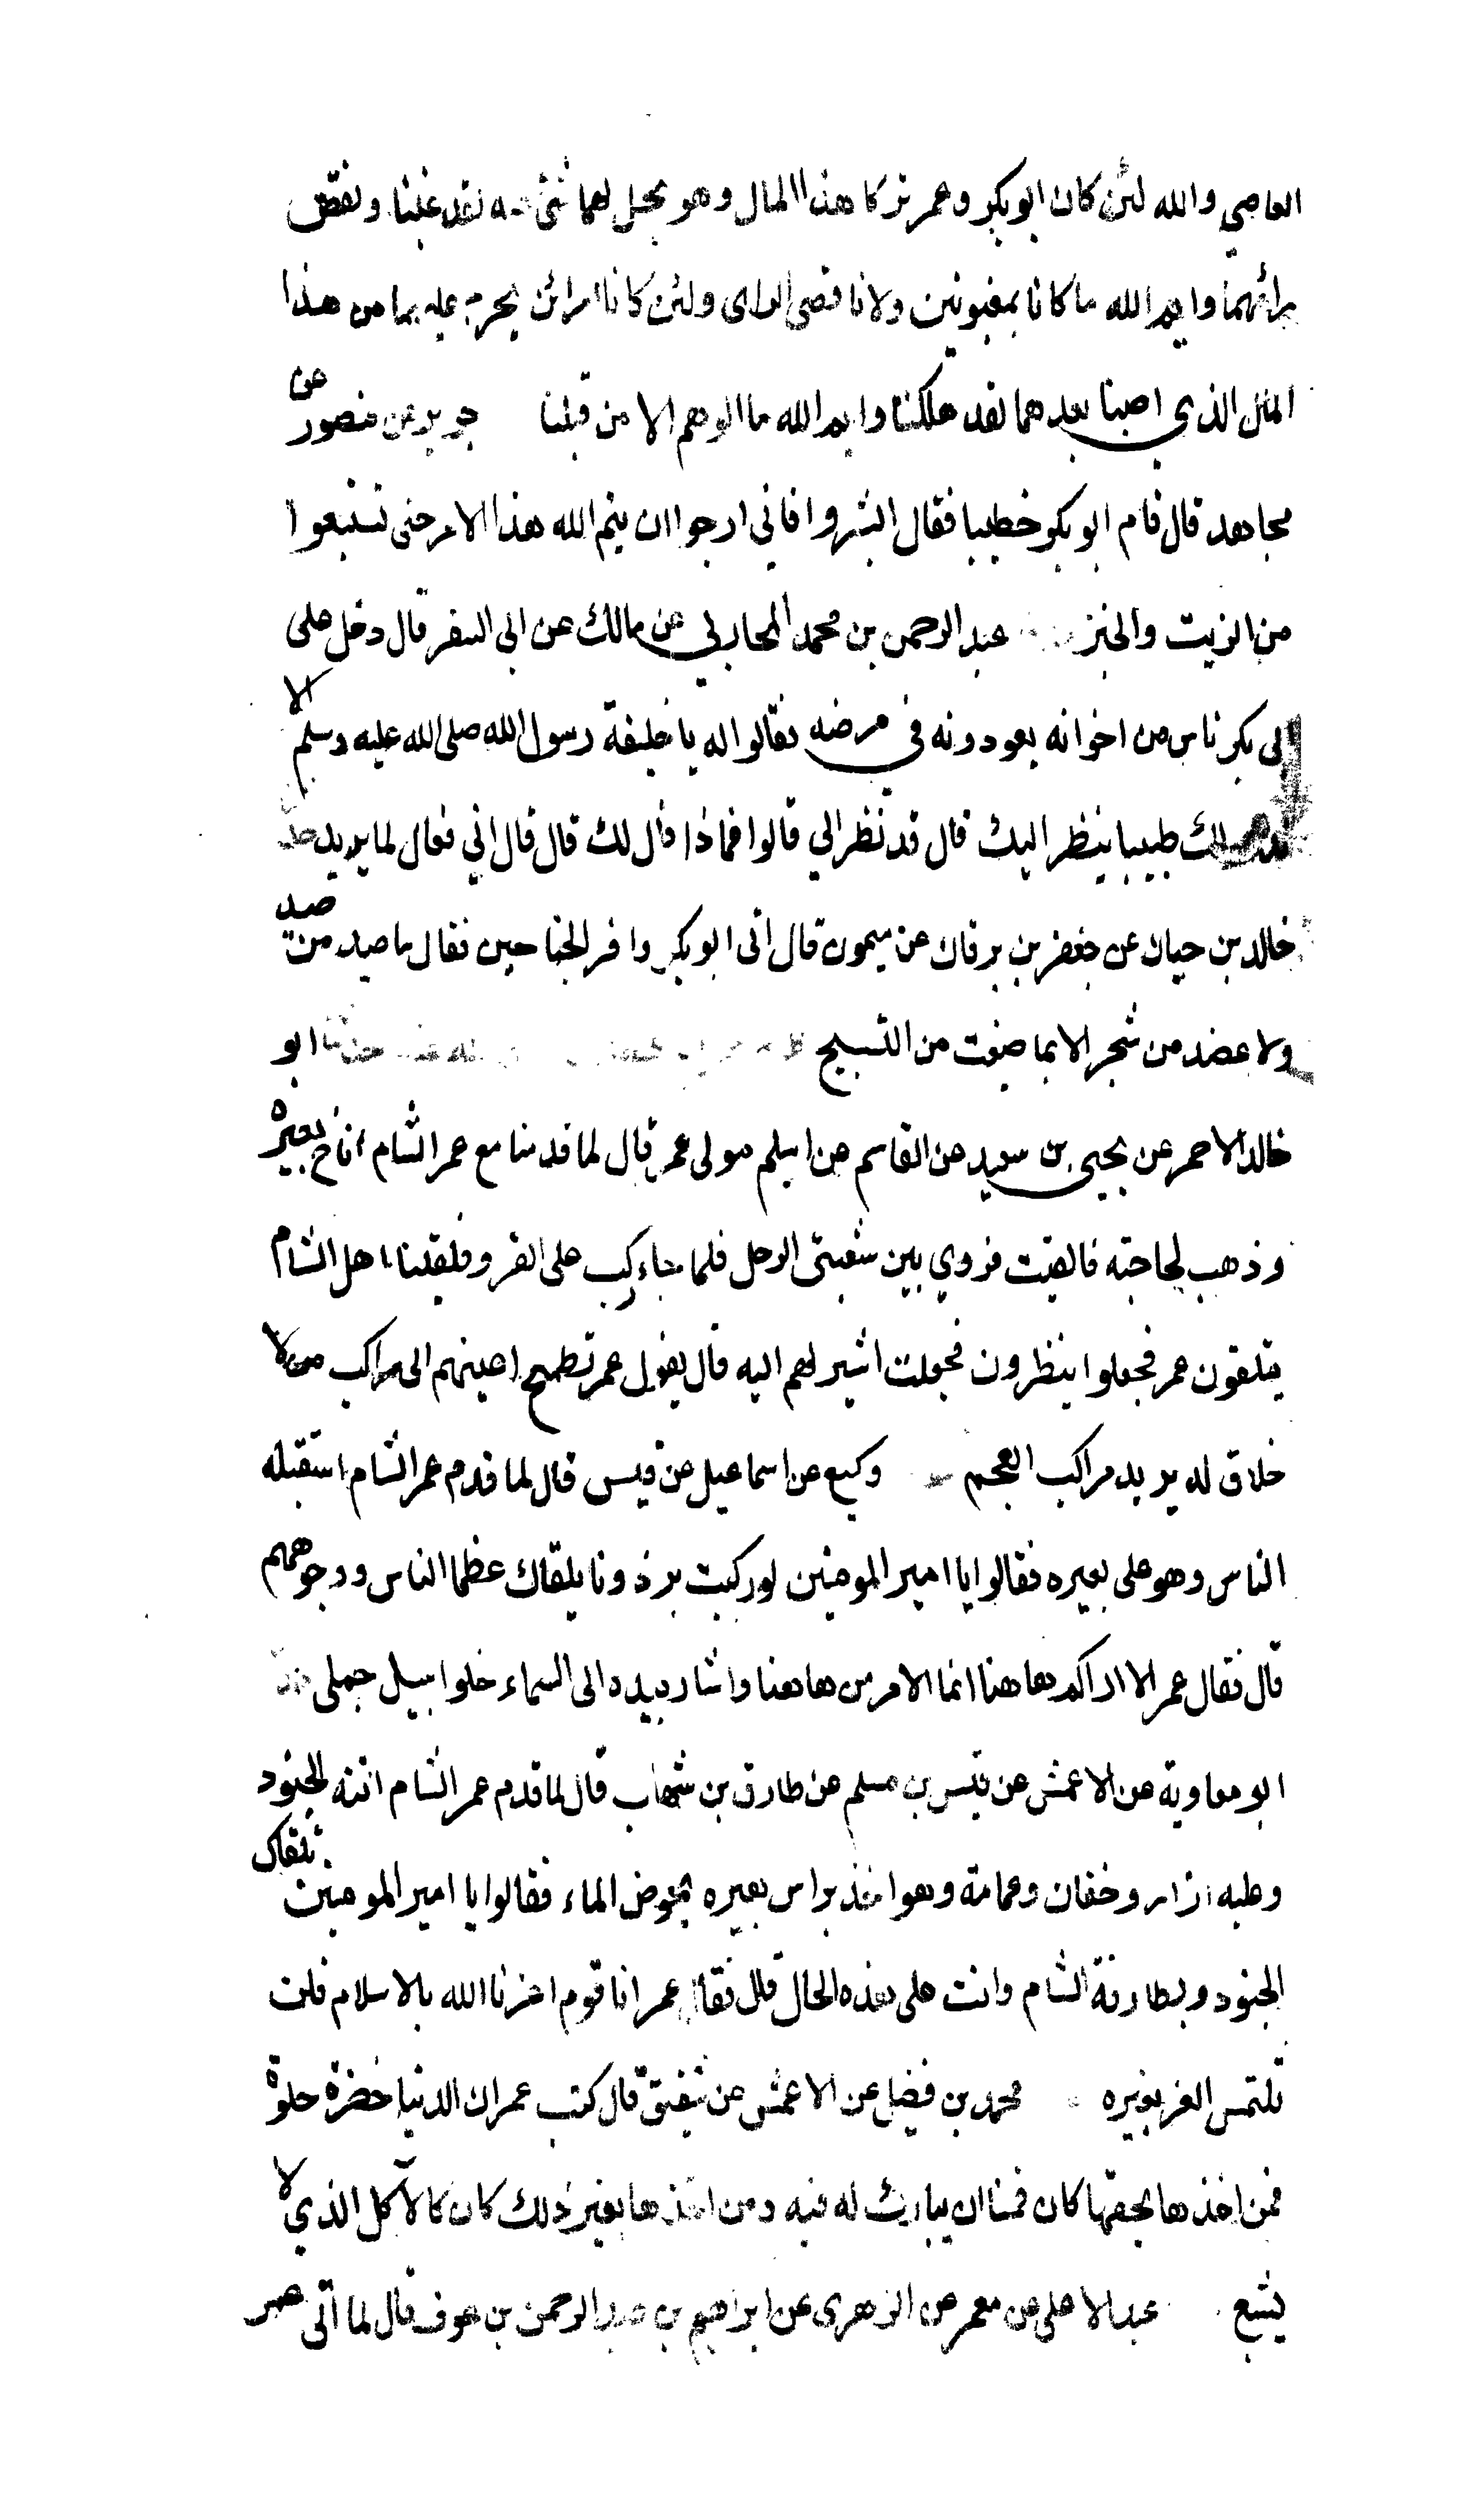 العاصي والله لئن كان ابو بكر وعمر تركا هذا المال وهو يحل لهما شئ منه لقد غبنا ونقص
رائهما وايم الله ما كانا بمغبونين ولا ناقصي الراى ولئن كانا امرائن يحرم عليهما من هذا
المال الذي اصبنا بعدهما لقد هلكنا وايم الله ما الوهم الا من قبلنا جرير عن منصور عن
مجاهد قال قام ابو بكر خطيبا فقال ابشروا فاني ارجوا ان يتم الله هذا الامر حتى تشبعوا
من الزيت والخبز عبد الرحمن بن محمد المحاربي عن مالك عن ابي السفر قال دخل على
ابي بكر ناس من اخوانه يعودونه في مرضه فقالوا له يا خليفة رسول الله صلى الله عليه وسلم الا
لك طبيبا ينظر اليك قال قد نظر الي قالوا فماذا قال لك قال قال اني فعال لما يريد
خالد بن حيان عن جعفر بن برقان عن ميمون قال اتى ابو بكر وافر الجناحين فقال ما صيد من صيد
ولا عضد من شجر الا بما ضيعت من التسبيح ابو
خالد الاحمر عن يحيى بن سعيد عن القاسم عن اسلم مولى عمر قال لما قدمنا مع عمر الشام اناخ بعيره
وذهب لحاجته فالقيت فروي بين شعبتي الرحل فلما جاء ركب على الفرو فلقينا اهل الشام
يتلقون عمر فجعلوا ينظرون فجعلت اشير لهم اليه قال يقول عمر تطمح اعينهم الى مراكب من لا
خلاق له يريد مراكب العجم وكيع عن اسماعيل عن قيس قال لما قدم عمر الشام استقبله
الناس وهو على بعيره فقالوا يا امير المومنين لو ركبت برذونا يلقاك عظما الناس ووجوههم
قال فقال عمر الا اراكم هاهنا انما الامر من هاهنا واشار بيده الى السماء خلوا سبيل جملي
ابو معاوية عن الاعمش عن قيس بن مسلم عن طارق بن شهاب قال لما قدم عمر الشام اتته الجنود
وعليه ازار وخفان وعمامة وهو اخذ براس بعيره يخوض الماء فقالوا يا امير المومنين تلقاك
الجنود وبطارقة الشام وانت على هذه الحال قال فقال عمر انا قوم اعزنا الله بالاسلام فلن
نلتمس العز بغيره محمد بن فضيل عن الاعمش عن شقيق قال كتب عمر ان الدنيا خضرة حلوة
فمن اخذها بحقها كان قمنا ان يبارك له فيه ومن اخذها بغير ذلك كان كالآكل الذي لا
يشبع عبد الاعلى عن معمر عن الزهرى عن ابراهيم بن عبد الرحمن بن عوف قال لما اتى عمر